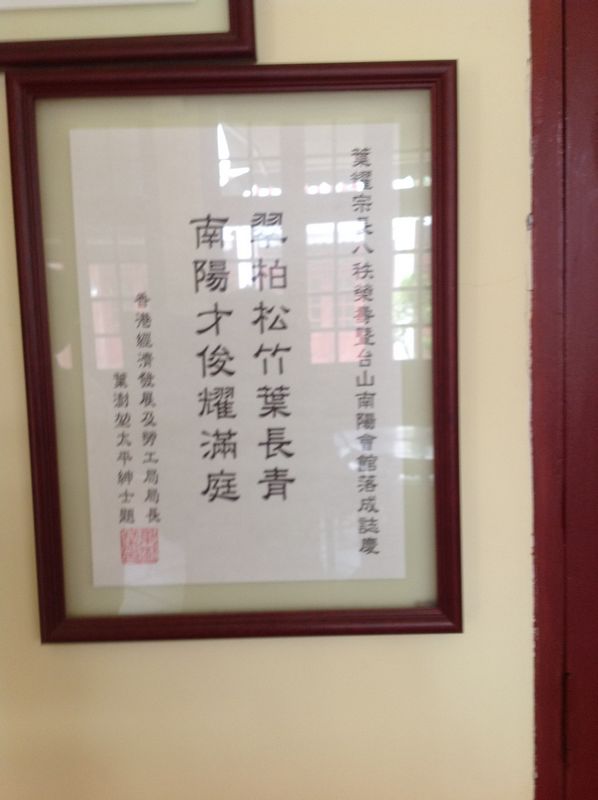 葉耀宗長八秩榮壽暨台山南陽會館落成誌慶
翠柏松竹葉長青
南陽才俊耀滿庭
香港經濟發展及勞工局局長
葉澍堃太平紳士題